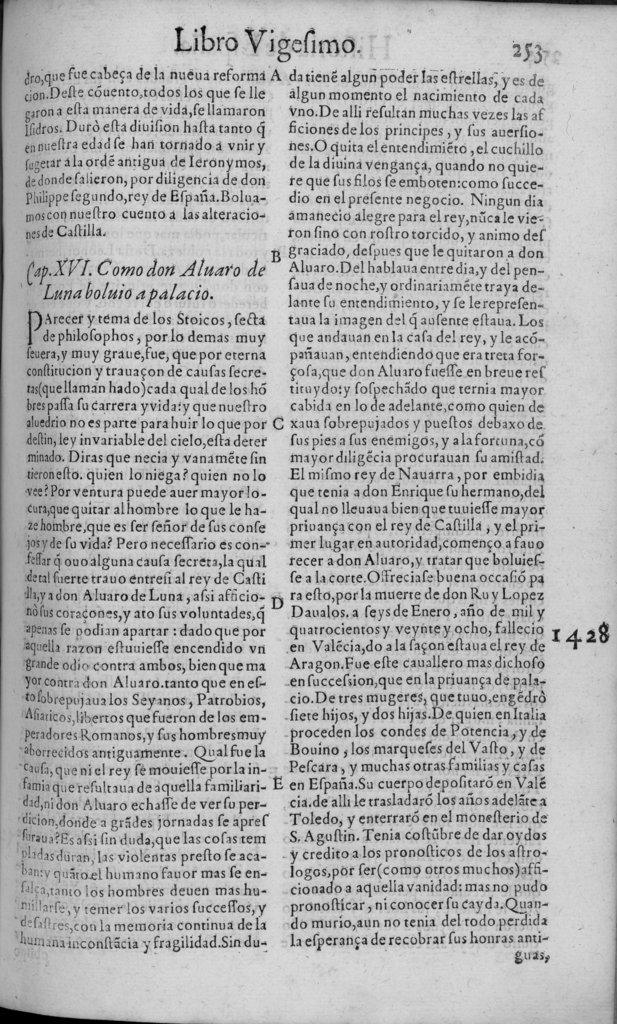 Libro Vigesimo.
253
dro, que fue cabeça de la nueua reforma
cion. Deste cóuento, todos los que se lle
garon a esta manera de vida, se llamaron
Isidros. Duró esta diuision hasta tanto q̃
en nuestra edad se han tornado a vnir y
sugetar á la ordẽ antigua de Ieronymos,
de donde salieron, por diligencia de don
Philippe segundo, rey de España. Bolua-
mos con nuestro cuento a las alteracio-
nes de Castilla.
Cap. XVI. Como don Aluaro de
Luna boluio a palacio.
PArecer y tema de los Stoicos, secta
de philosophos, por lo demas muy
seuera, y muy graue, fue, que por eterna
constitucion y trauaçon de causas secre-
tas (que llaman hado) cada qual de los hõ
bres passa su carrera y vida: y que nuestro
aluedrio no es parte para huir lo que por
destin, ley inuariable del cielo, esta deter
minado. Diras que necia y vanamẽte sin
tieron esto. quien lo niega? quien no lo
vee? Por ventura puede auer mayor lo-
cura, que quitar al hombre lo que le ha-
ze hombre, que es ser señor de sus conse
jos y de su vida? Pero necessario es con-
fessar q̃ ouo alguna causa secreta, la qual
de tal suerte trauo entre si al rey de Casti
lla, y a don Aluaro de Luna, assi afficio-
nò sus coraçones, y ato sus voluntades, q̃
apenas se podian apartar: dado que por
aquella razon estuuiesse encendido vn
grande odio contra ambos, bien que ma
yor contra don Aluaro. tanto que en es-
to sobrepujaua los Seyanos, Patrobios,
Asiaticos, libertos que fueron de los em-
peradores Romanos, y sus hombres muy
aborrecidos antiguamente. Qual fue la
causa, que ni el rey se mouiesse por la in-
famia que resultaua de aquella familiari-
dad, ni don Aluaro echasse de ver su per-
dicion, donde a grãdes jornadas se apres
suraua? Es assi sin duda, que las cosas tem
pladas duran, las violentas presto se aca-
ban: y quãto el humano fauor mas se en-
salça, tanto los hombres deuen mas hu-
millarse, y temer los varios successos, y
desastres, con la memoria continua de la
humana inconstãcia y fragilidad. Sin du-
A
B
C
D
E
da tienẽ algun poder las estrellas, y es de
algun momento el nacimiento de cada
vno. De alli resultan muchas vezes las af
ficiones de los principes, y sus auersio-
nes. O quita el entendimiẽto, el cuchillo
de la diuina vengança, quando no quie-
re que sus filos se emboten: como succe-
dio en el presente negocio. Ningun dia
amanecio alegre para el rey, nũca le vie-
ron sino con rostro torcido, y animo des
graciado, despues que le quitaron a don
Aluaro. Del hablaua entre dia, y del pen-
saua de noche, y ordinariamẽte traya de-
lante su entendimiento, y se le represen-
taua la imagen del q̃ ausente estaua. Los
que andauan en la casa del rey, y le acõ-
pañauan, entendiendo que era treta for-
çosa, que don Aluaro fuesse en breue res
tituydo: y sospechãdo que ternia mayor
cabida en lo de adelante, como quien de
xaua sobrepujados y puestos debaxo de
sus pies a sus enemigos, y a la fortuna, cõ
mayor diligẽcia procurauan su amistad.
El mismo rey de Nauarra, por embidia
que tenia a don Enrique su hermano, del
qual no lleuaua bien que tuuiesse mayor
priuança con el rey de Castilla, y el pri-
mer lugar en autoridad, començo a fauo
recer a don Aluaro, y tratar que boluies-
se a la corte. Offreciase buena occasiõ pa
ra esto, por la muerte de don Ruy Lopez
Daualos. a seys de Enero, año de mil y
quatrocientos y veynte y ocho, fallecio
en Valẽcia, do a la saçon estaua el rey de
Aragon. Fue este cauallero mas dichoso
en succession, que en la priuança de pala-
cio. De tres mugeres, que tuuo, engẽdrò
siete hijos, y dos hijas. De quien en Italia
proceden los condes de Potencia, y de
Bouino, los marqueses del Vasto, y de
Pescara, y muchas otras familias y casas
en España. Su cuerpo depositarõ en Valẽ
cia. de alli le trasladarõ los años adelãte a
Toledo, y enterrarõ en el monesterio de
S. Agustin. Tenia costũbre de dar oydos
y credito a los pronosticos de los astro-
logos, por ser (como otros muchos) affi-
cionado a aquella vanidad: mas no pudo
pronosticar, ni conocer su cayda. Quan-
do murio, aun no tenia del todo perdida
la esperança de recobrar sus honras anti-
guas,
1428